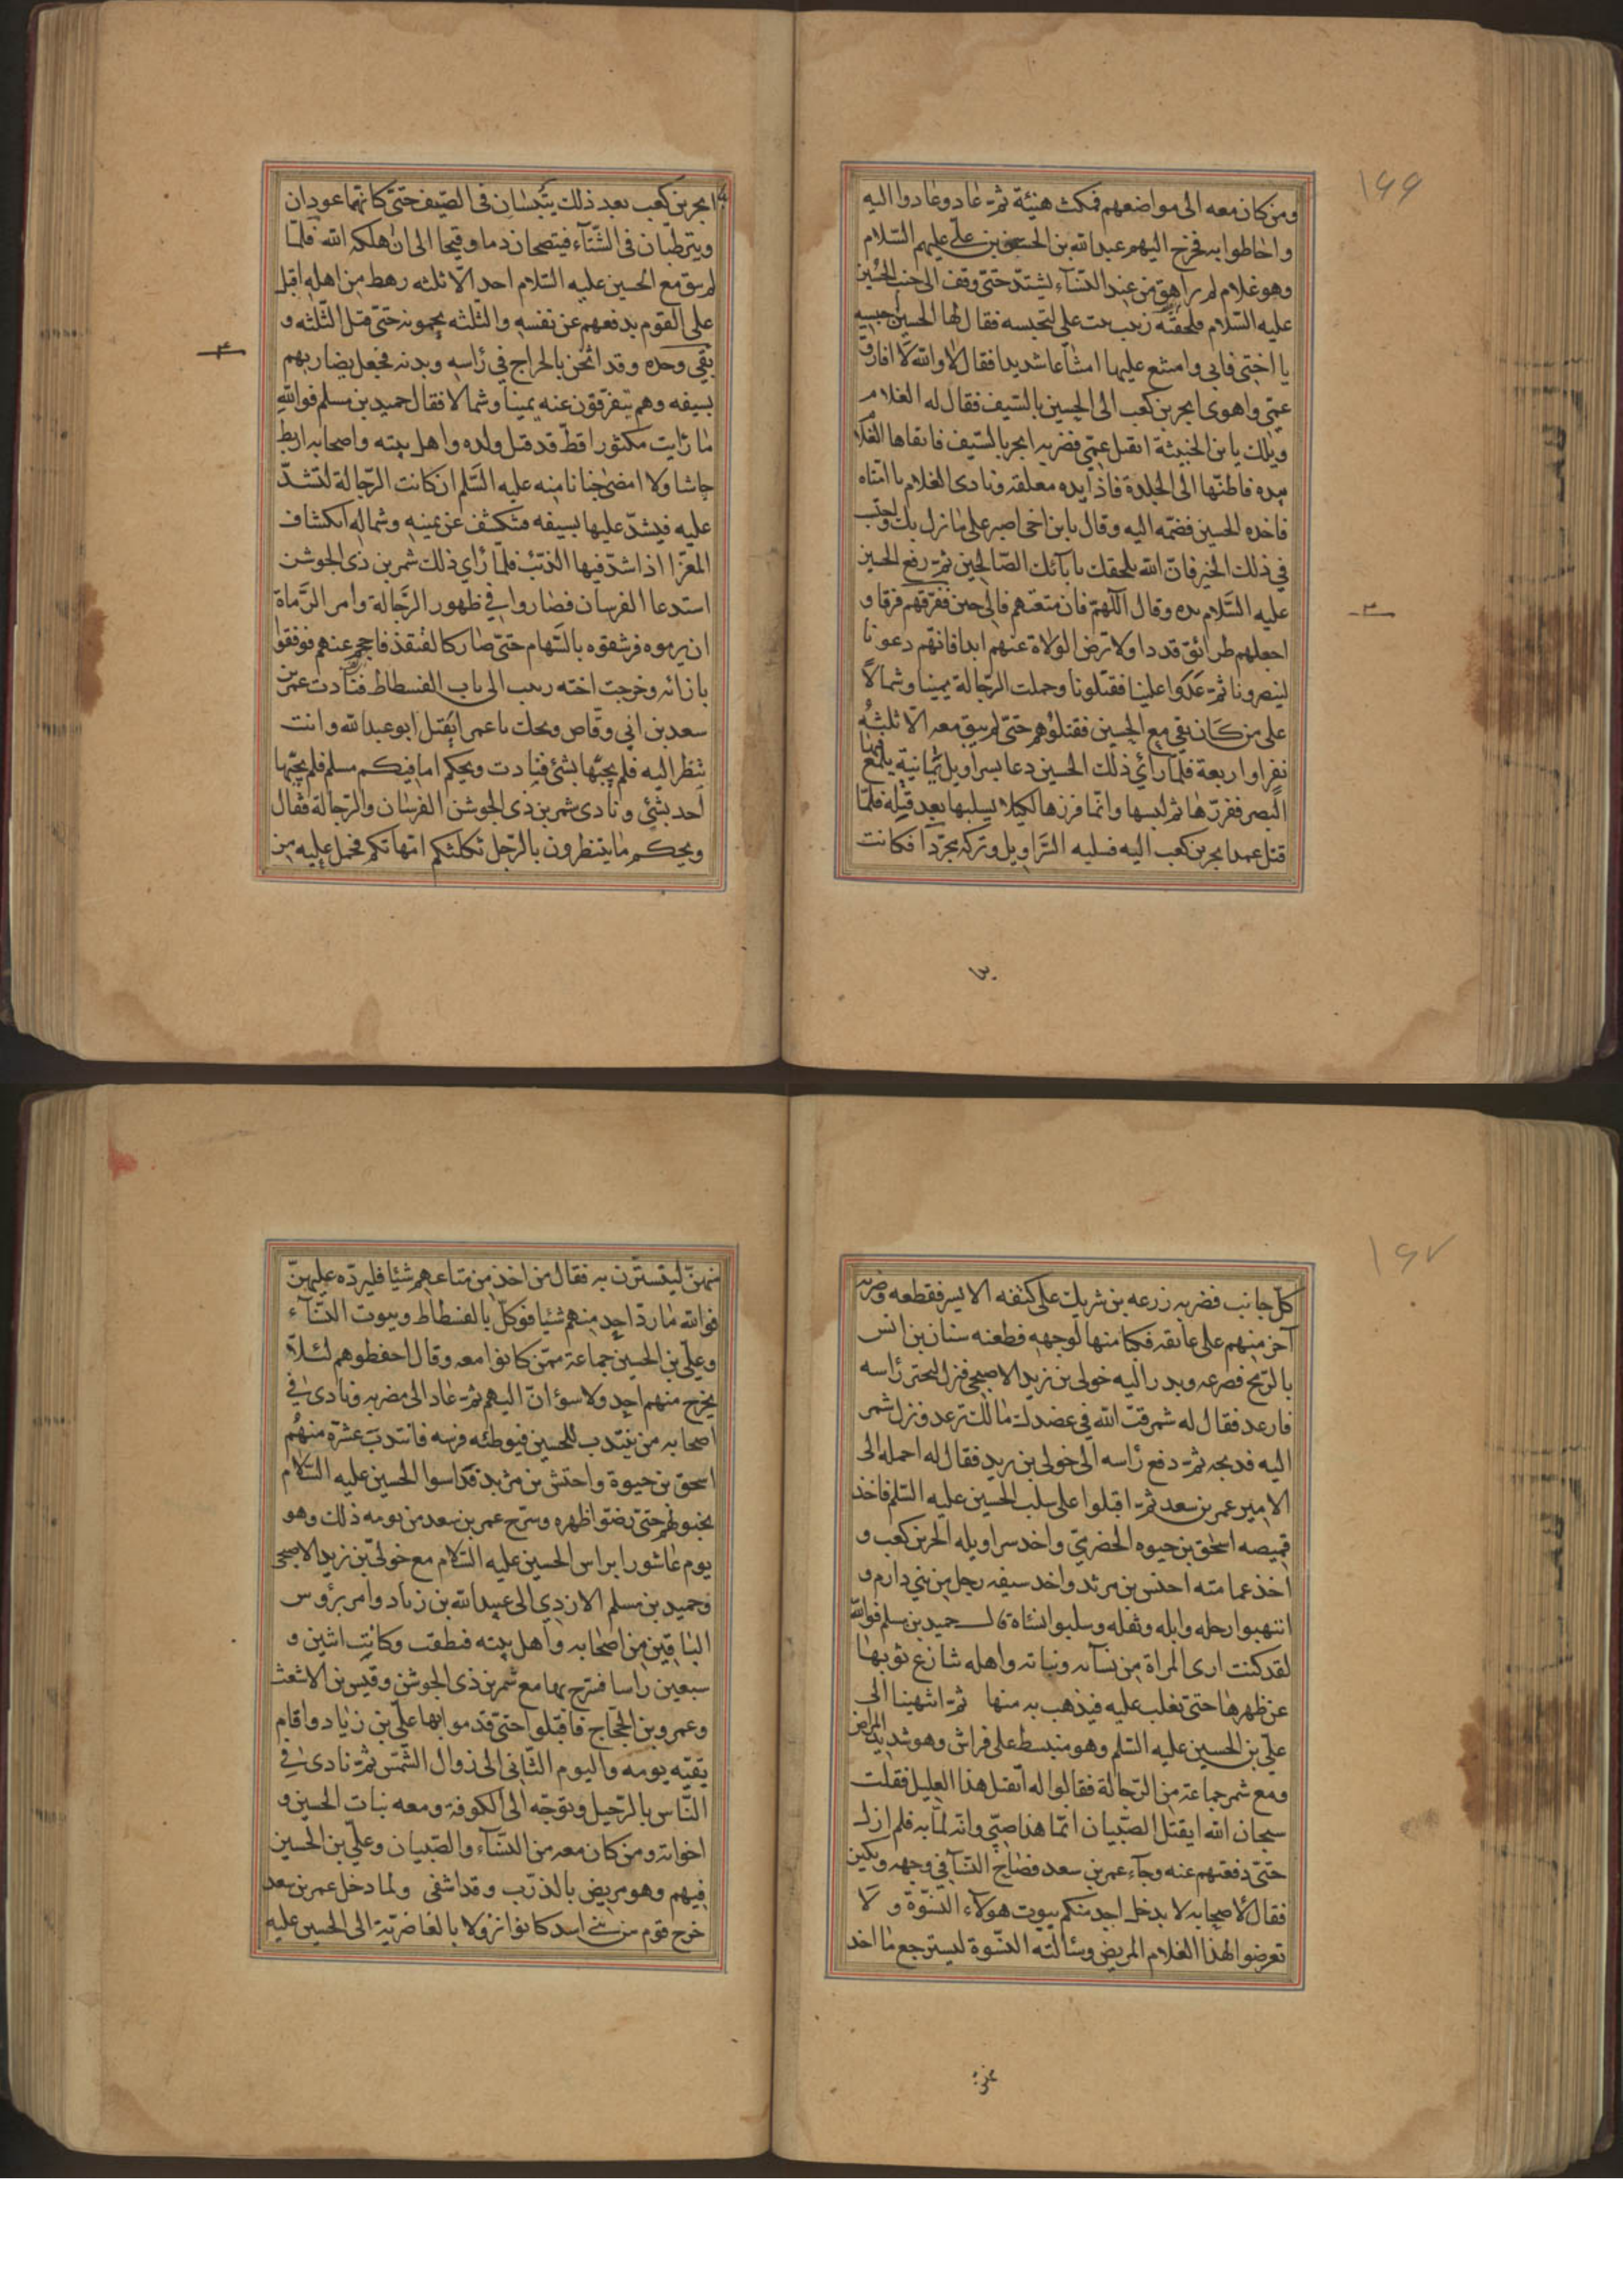 ١٦٦
ومن كان معه الى مواضعهم فمكث هنيئة ثم عاد وعادوا اليه
واحاطوا به فخرج اليهم عبد الله بن الحسن بن علي عليهم السّلام
وهو غلام لم يراهق من عند النسآء يشتدّ حتى وقف الى جنب الحسين
عليه السّلام فلحقته زينب بنت على لتحبسه فقال لها الحسين احبسيه
يا اختى فابى وامتنع عليها امتناعا شديدا فقال لا والله لا افارق
عمّى واهوى ابجر بن كعب الى الحسين بالسّيف فقال له الغلام
ويلك يا بن الخبيثة اتقتل عمّى فضربه ابجر بالسّيف فاتقاها الغلام
بيده فاطنّها الى الجلدة فاذا يده معلقة ونادى الغلام يا امتاه
فاخذه الحسين فضمّه اليه وقال يا بن اخى اصبر على ما نزل بك واحتسب
في ذلك الخير فانّ الله يلحقك بآبآئك الصّالحين ثم رفع الحسين
عليه السّلام يده وقال اللّهمّ فان متعتهم فالى حين ففرّقهم فرقا و
اجعلهم طرائق قددا ولا ترض الولاة عنهم ابدا فانّهم دعونا
لينصرونا ثم عدوا علينا فقتلونا وحملت الرّجالة يمينا وشمالاً
على من كان بقي مع الحسين فقتلوهم حتى لم يبق معه الّا ثلثة
نفر او اربعة فلمّا رأى ذلك الحسين دعا بسراويل يمانية يلمع فيها
البصر ففزّرها ثم لبسها وانّما فزرها لكيلا يسلبها بعد قتله فلمّا
قتل عمد ابجر بن كعب اليه فسلبه السّراويل وتركه مجرّدا فكانت
يدا
ابجر بن كعب بعد ذلك يتيبسان في الصّيف حتى كانّهما عودان
ويترطبان في الشّتآء فينضحان دما وقيحا الى ان اهلكه الله فلمّا
لم يبق مع الحسين عليه السّلام احد الّا ثلثه رهط من اهله اقبل
على القوم يدفعهم عن نفسه والثّلثه يحمونه حتى قتل الثّلثه و
بقى وحده وقد اثخن بالجراح في رأسه وبدنه فجعل يضاربهم
بسيفه وهم يتفرّقون عنه يمينا وشمالا فقال حميد بن مسلم فوالله
ما رأيت مكثورا قطّ قد قتل ولده واهل بيته واصحابه اربط
جاشا ولا امضى جنانا منه عليه السّلم ان كانت الرّجالة لتشدّ
عليه فيشدّ عليها بسيفه فتكشف عن يمينه وشماله انكشاف
المعزا اذا شدّ فيها الذئب فلمّا رأى ذلك شمر بن ذى الجوشن
استدعا الفرسان فصاروا في ظهور الرّجالة وامر الرّماة
ان يرموه فرشقوه بالسّهام حتى صار كالقنفذ فاحجم عنهم فوقفوا
بازائه وخرجت اخته زينب الى باب الفسطاط فنادت عمر بن
سعد بن ابى وقّاص ويحك يا عمر ايقتل ابو عبد الله وانت
تنظر اليه فلم يجبها بشئ فنادت ويحكم اما فيكم مسلم فلم يجبها
احد بشئ ونادى شمر بن ذى الجوشن الفرسان والرّجالة فقال
ويحكم ما ينتظرون بالرّجل ثكلتكم امّهاتكم فحمل عليه من
١٦٧
كلّ جانب فضربه زرعه بن شريك على كتفه الايسر فقطعه وضربه
آخر منهم على عاتقه فكبا منها لوجهه فطعنه سنان بن انس
بالرّمح فصرعه وبدر اليه خولى بن يزيد الاصبحى فنزل ليحتز رأسه
فارعد فقال له شمر فتّ الله في عضدك مالك ترعد ونزل شمر
اليه فذبحه ثم دفع رأسه الى خولى بن يزيد فقال له احمله الى
الامير عمر بن سعد ثم اقبلوا على سلب الحسين عليه السّلم فاخذ
قميصه اسحق بن حيوه الحضرمى واخذ سراويله ابجر بن كعب و
اخذ عمامته احنس بن مرثد واخذ سيفه رجل من بني دارم و
انتهبوا رحله وابله وثقله وسلبوا نسآءه قال حميد بن مسلم فوالله
لقد كنت ارى المرأة من نسآئه وبناته واهله تنازع ثوبها
عن ظهرها حتى تغلب عليه فيذهب به منها ثم انتهينا الى
على بن الحسين عليه السّلم وهو منبسط على فراش وهو شديد المرض
ومع شمر جماعة من الرّجالة فقالوا له انقتل هذا العليل فقلت
سبحان الله ايقتل الصّبيان انّما هذا صبىّ وانّه لما به فلم ازل
حتى دفعتهم عنه وجآء عمر بن سعد فصاح النّسآ في وجهه وبكين
فقال لاصحابه لا يدخل احد منكم بيوت هولآء النّسوة ولا
تعرضوا لهذا الغلام المريض وسألته النّسوة ليسترجع ما اخذ
منهنّ
منهنّ ليتسترن به فقال من اخذ من متاعهم شيئا فليردّه عليهنّ
فوالله ما ردّ احد منهم شيئا فوكّل بالفسطاط وبيوت النّسآء
وعلى بن الحسين جماعة ممّن كانوا معه وقال احفظوهم لئلّا
يخرج منهم احد ولا سوؤانّ اليهم ثم عاد الى مضربه ونادى في
اصحابه من ينتدب للحسين فيوطئه فرسه فانتدب عشرة منهم
اسحق بن حيوة واحتش بن مرثد فداسوا الحسين عليه السّلام
بخيولهم حتى رضّوا ظهره وسرّح عمر بن سعد من يومه ذلك وهو
يوم عاشورا براس الحسين عليه السّلام مع خولى بن يزيد الاصبحى
وحميد بن مسلم الازدي الى عبيد الله بن زياد وامر برؤس
الباقين من اصحابه واهل بيته فنظفت وكانت اثنين و
سبعين رأسا فسرّح بها مع شمر بن ذى الجوشن وقيس بن الاشعث
وعمرو بن الحجاج فاقبلوا حتى قدموا بها على بن زياد واقام
بقيّه يومه واليوم الثّانى الى زوال الشّمس ثم نادى في
النّاس بالرّحيل وتوجّه الى الكوفة ومعه بنات الحسين و
اخواته ومن كان معه من النّسآء والصّبيان وعلى بن الحسين
فيهم وهو مريض بالذرب وقد اشفى ولما دخل عمر بن سعد
خرج قوم من بنى اسد كانوا نزولا بالغاضريّة الى الحسين عليه